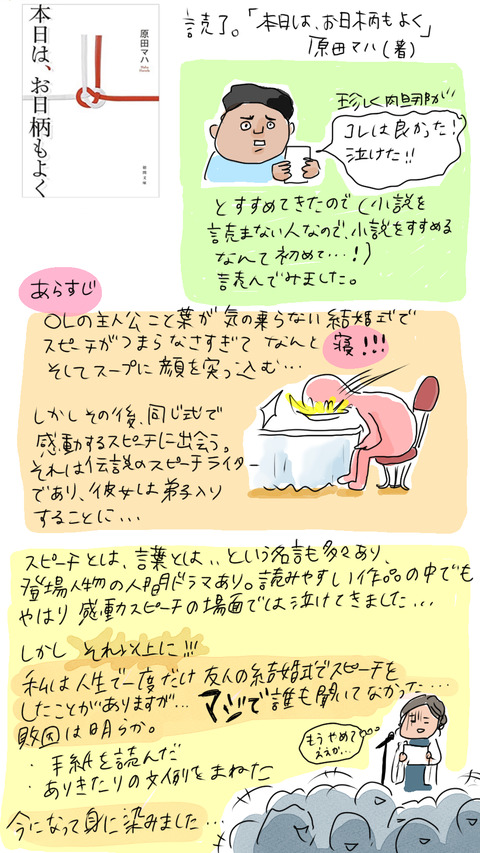 原田マハ
Maha Harada
本日は、お日柄もよく
徳間文庫
読了。「本日は、お日柄もよく」
原田マハ(著)
珍しく内旦那が
コレは良かった!
泣けた!!
とすすめてきたので(小説を
読まない人なので、小説をすすめる
なんて初めて…!)
読んでみました。
あらすじ
OLの主人公こと葉が気の乗らない結婚式で
スピーチがつまらなさすぎて なんと寝!!!
そしてスープに顔を突っ込む…
しかしその後、同じ式で
感動するスピーチに出会う。
それは伝説のスピーチライター
であり、彼女は弟子入り
することに…
スピーチとは、言葉とは..という名言も多々あり、
登場人物の人間ドラマあり。読みやすい作品の中でも
やはり感動スピーチの場面では泣けてきました…
しかし それ以上に!!!
私は人生で一度だけ友人の結婚式でスピーチを
したことがありますが… マジで誰も聞いてなかった…
敗因は明らか。
・手紙を読んだ
・ありきたりの文例をまねた
もうやめて
ええか…
今になって身に染みました…